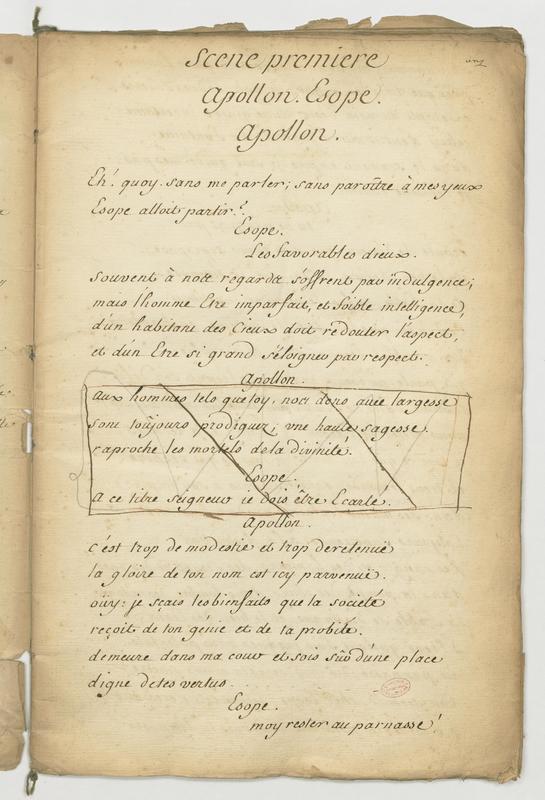 Scene premiere
Apollon. Esope.
Apollon.
Eh! quoy. sans me parler; sans paroître à mes yeux
Esope alloit partir?
Esope.
Les favorables dieux.
souvent à nos regards s'offrent par indulgence;
mais l'homme Etre imparfait, et foible intelligence,
d'un habitant des Cieux doit redouter l'aspect,
et d'un Etre si grand s'éloigner par respect.
Apollon.
Aux hommes tels que toy, nos dons avec largesse
sont toûjours prodiguez; une haute sagesse.
raproche les mortels de la divinité.
Esope.
A ce titre seigneur je dois être Ecarté.
Apollon.
c'est trop de modestie et trop de retenuë
la gloire de ton nom est icy parvenuë.
oüy: je sçais les bienfaits que la societé
reçoit de ton génie et de ta probité.
demeure dans ma cour et sois sûr d'une place
digne de tes vertus.
Esope.
moy rester au parnasse!